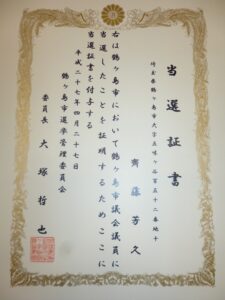 当選証書
埼玉県鶴ヶ島市大字五味ヶ谷百五十二番地十
齊藤芳久
右は鶴ヶ島市において鶴ヶ島市議会議員に
当選したことを証明するためここに
当選証書を付与する
平成二十七年四月二十七日
鶴ヶ島市選挙管理委員会
委員長 大塚哲也